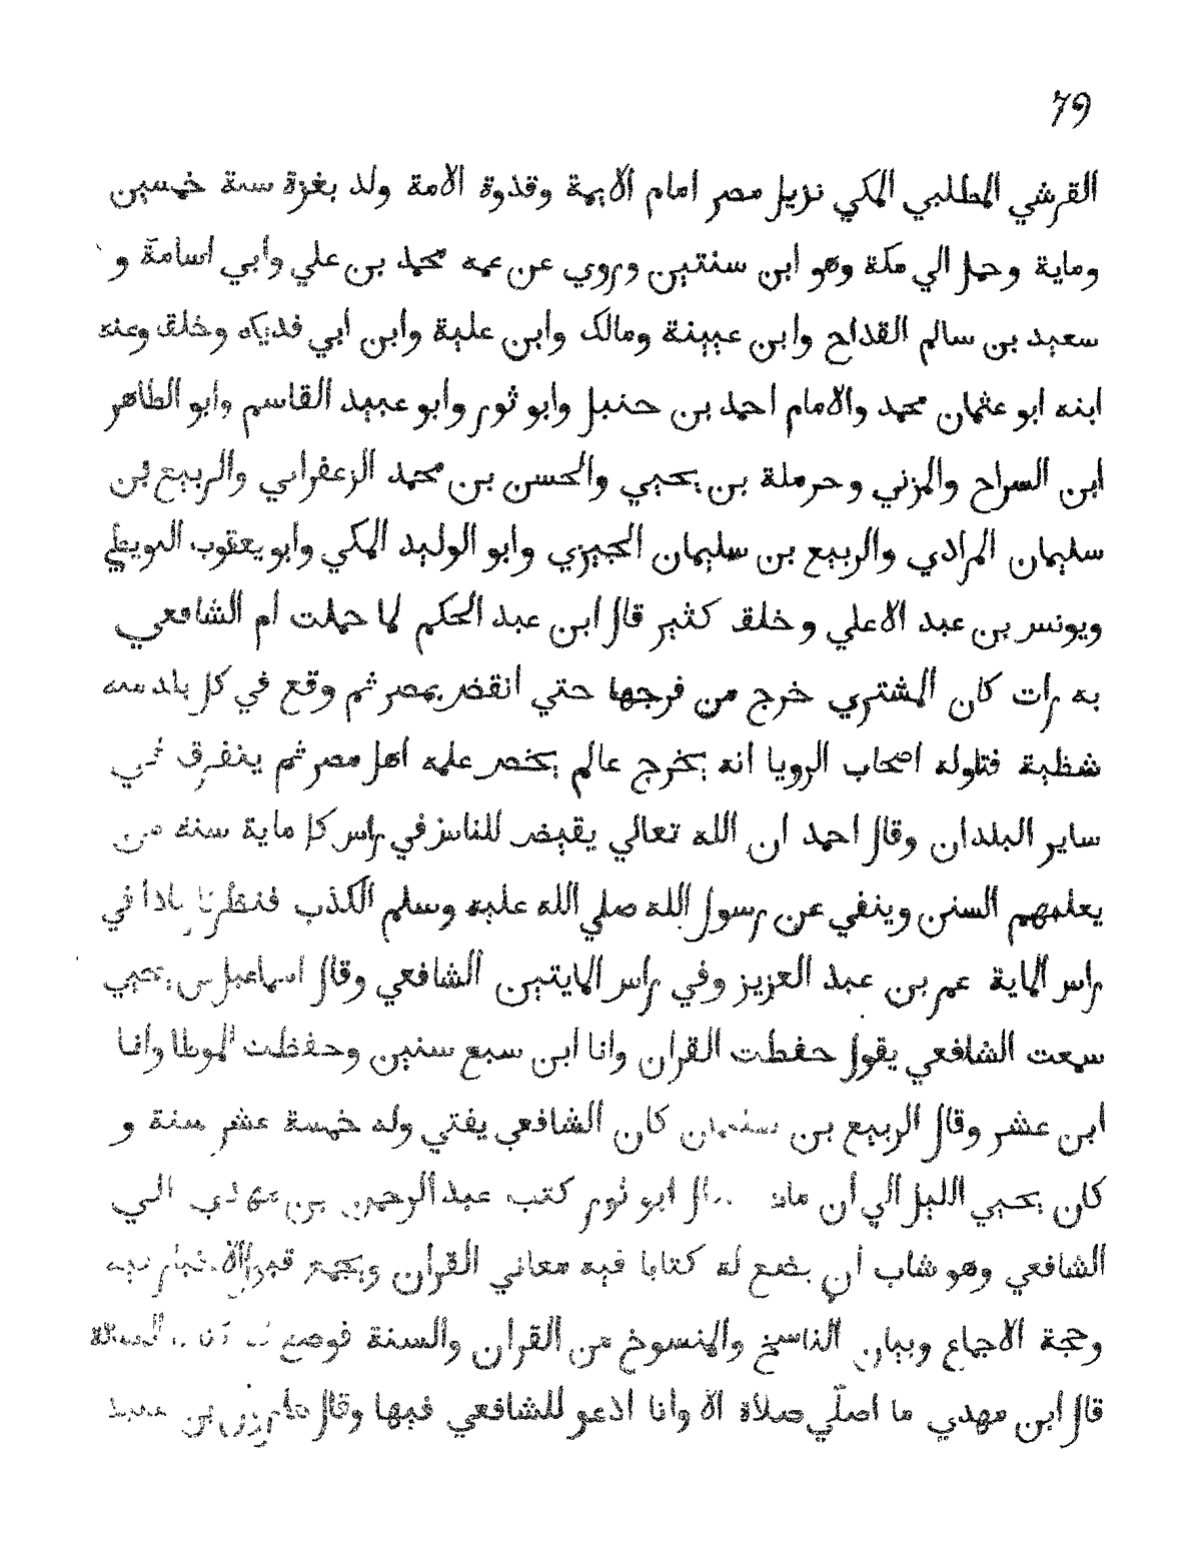 79
القرشي المطلبي المكي نزيل مصر امام الايمة وقدوة الامة ولد بغزة سنة خمسين
وماية وحمل الي مكة وهو ابن سنتين وروي عن عمه محمد بن علي وابي اسامة و
سعيد بن سالم القداح وابن عيينة ومالك وابن علية وابن ابي فديك وخلق وعنه
ابنه ابو عثمان محمد والامام احمد بن حنبل وابو ثور وابو عبيد القاسم وابو الطاهر
ابن السراح والمزني وحرملة بن يحيي والحسن بن محمد الزعفراني والربيع بن
سليمان المرادي والربيع بن سليمان الجيزي وابو الوليد المكي وابو يعقوب البويطي
ويونس بن عبد الاعلي وخلق كثير قال ابن عبد الحكم لما حملت ام الشافعي
به رات كان المشتري خرج من فرجها حتي انقض بمصر ثم وقع في كل بلد منه
شظية فتاوله اصحاب الرويا انه يخرج عالم يخص علمه اهل مصر ثم يتفرق في
ساير البلدان وقال احمد ان الله تعالي يقيض للناس في راس كل ماية سنة من
يعلمهم السنن وينفي عن رسول الله صلي الله عليه وسلم الكذب فنظرنا فاذا في
راس الماية عمر بن عبد العزيز وفي راس المايتين الشافعي وقال اسماعيل بن يحيي
سمعت الشافعي يقول حفظت القران وانا ابن سبع سنين وحفظت الموطا وانا
ابن عشر وقال الربيع بن سليمان كان الشافعي يفتي وله خمسة عشر سنة و
كان يحيي الليل الي أن مات قال ابو ثور كتب عبد الرحمن بن مهدي الي
الشافعي وهو شاب أن يضع له كتابا فيه معاني القران ويجمع الاخبار فيه
وحجة الاجماع وبيان الناسخ والمنسوخ من القران والسنة فوضع الرسالة
قال ابن مهدي ما اصلّي صلاة الا وانا ادعو للشافعي فيها وقال هارون بن سعيد